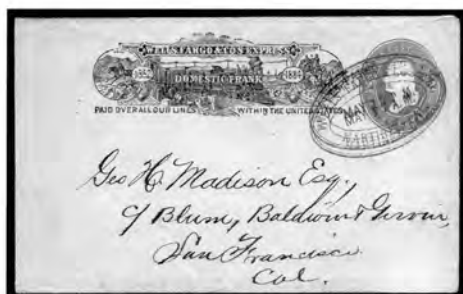 WELLS FARGO & CO'S EXPRESS
1852 DOMESTIC FRANK 1884
PAID OVER ALL OUR LINES WITHIN THE UNITED STATES
MAY
MARTINEZ
Geo H. Madison Esq,
c/ Blum, Baldwin & Girvin,
San Francisco
Cal.